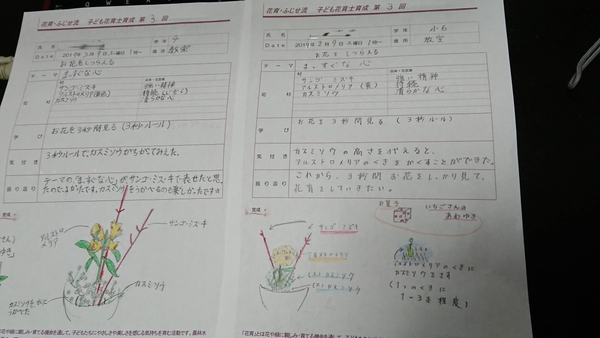 花育・ふじせ流 子ども花育士育成 第 3 回
氏 名
Date 2019年3月9日土曜日 1時〜
場所 教室
お花をしつらえる
テーマ まっすぐな心
サンゴ・ミズキ 強い精神
アルストロメリア(黄色) 持続
カスミソウ 清らかな心
学 び お花を3秒間見る(3秒ルール)
気付き 3秒ルールで、カスミソウがちがってみえた。
振り返り テーマの「まっすぐな心」がサンゴ・ミズキで表せたと思
完成
サンゴ・ミズキ
アルストロ
メリア
カスミソウ
花育・ふじせ流 子ども花育士育成 第 3 回
氏 名 小6
Date 2019年3月9日土曜日 1時〜
場所 教室
お花をしつらえる
テーマ まっすぐな心
サンゴ・ミズキ 強い精神
アルストロメリア(黄) 持続
カスミソウ 清らかな心
学 び お花を3秒間見る(3秒ルール)
気付き カスミソウの高さを代えると、
アルストロメリアのくきをかくすことができた。
振り返り これから、3秒間お花をしっかり見て、
花育をしていきたい。
完成
お菓子
いちごさんの
あわゆき
サンゴ・ミズキ
アルストロメリア
カスミソウ
アルストロメリアのくきに
カスミソウをさす
(1つのくきに
1〜3本程度)